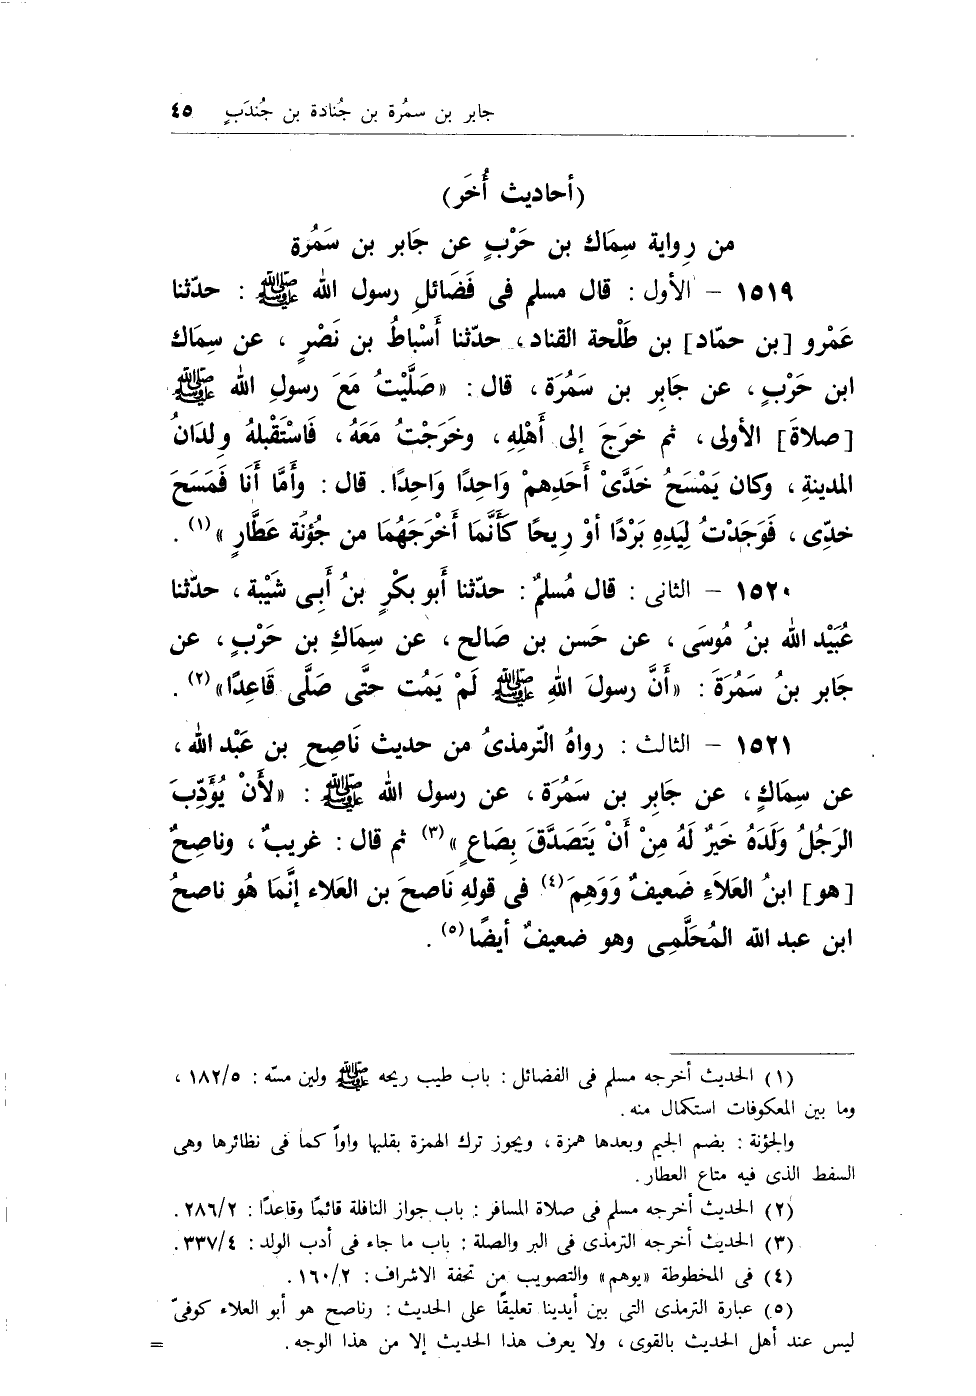 جابر بن سمُرة بن جُنادة بن جُندَبٍ ٤٥
(أحاديث أُخَر)
من رواية سِمَاك بن حَرْبٍ عن جَابر بن سَمُرة
١٥١٩ - الأول : قال مسلم فى فَضَائلِ رسول الله ﷺ : حدّثنا
عَمْرو [بن حمّاد] بن طَلْحة القناد، حدّثنا أَسْباطُ بن نَصْرٍ ، عن سِمَاك
ابن حَرْبٍ، عن جَابِر بن سَمُرَة، قال : «صَلَّيْتُ مَعَ رسولِ الله ﷺ
[صلاةَ] الأولى، ثم خرَجَ إلى أَهْلِهِ، وخَرَجْتُ مَعَهُ، فَاسْتَقْبلهُ وِلدَانُ
المدينةِ ، وكان يَمْسَحُ خَدَّىْ أَحَدِهِمْ وَاحِدًا وَاحِدًا. قال : وأَمَّا أَنَا فَمَسَحَ
خدِّى، فَوَجَدْتُ لِيَدِهِ بَرْدًا أوْ رِيحًا كَأَنَّمَا أَخْرَجَهُمَا من جُؤنَة عَطَّارٍ»(١) .
١٥٢٠ - الثانى : قال مُسلمٌ : حدّثنا أبو بكْرٍ بنُ أبى شَيْبة ، حدّثنا
عُبَيْد الله بنُ مُوسَى، عن حَسن بن صَالح، عن سِمَاكِ بن حَرْبٍ، عن
جَابر بنُ سَمُرَةَ : «أَنَّ رسولَ اللهِ ﷺ لَمْ يَمُت حتَّى صَلَّى قَاعِدًا»(٢) .
١٥٢١ - الثالث : رواهُ التّرمذىُ من حديث نَاصِحِ بن عَبْد الله ،
عن سِمَاكٍ، عن جَابِر بن سَمُرَة، عن رسول الله ﷺ : «لأَنْ يُؤَدِّبَ
الرَجُلُ وَلَدَهُ خَيرٌ لَهُ مِنْ أَنْ يَتَصَدَّقَ بِصَاعٍ»(٣) ثم قال : غريبٌ، وناصِحٌ
[هو] ابنُ العَلاَءِ ضَعيفٌ وَوَهِمَ(٤) فى قولهِ نَاصحَ بن العَلاء إنَّمَا هُو ناصحُ
ابن عبد الله المُحَلَّمِى وهو ضعيفٌ أيضًا(٥) .
(١) الحديث أخرجه مسلم فى الفضائل : باب طيب ريحه ﷺ ولين مسّه : ١٨٢/٥ ،
وما بين المعكوفات استكمال منه .
والجؤنة : بضم الجيم وبعدها همزة ، ويجوز ترك الهمزة بقلبها واواً كما فى نظائرها وهى
السفط الذى فيه متاع العطار .
(٢) الحديث أخرجه مسلم فى صلاة المسافر : باب جواز النافلة قائمًا وقاعدًا : ٢٨٦/٢ .
(٣) الحديث أخرجه الترمذى فى البر والصلة : باب ما جاء فى أدب الولد : ٣٣٧/٤ .
(٤) فى المخطوطة «يوهم» والتصويب من تحفة الاشراف : ١٦٠/٢ .
(٥) عبارة الترمذى التى بين أيدينا تعليقًا على الحديث : رناصح هو أبو العلاء كوفىّ
ليس عند أهل الحديث بالقوى، ولا يعرف هذا الحديث إلا من هذا الوجه . =